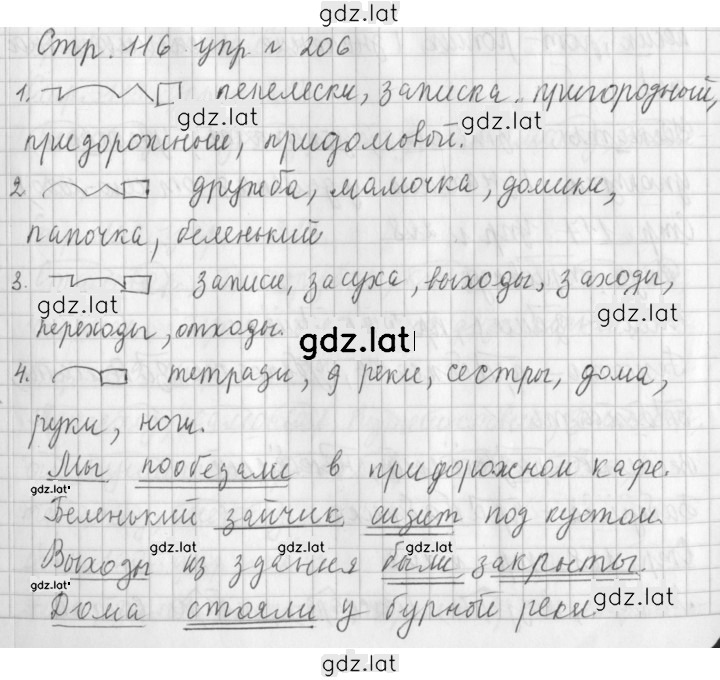 gdz.lat
Стр. 116 упр. 206
1. пепелески, записка. пригородный,
gdz.lat gdz.lat
придорожный, придомовой.
2. дружба, мамочка, домики,
папочка, беленький
3. записи, засуха, выходы, заходы,
gdz.lat
переходы, отходы.
gdz.lat
4. тетради, реки, сестры, дома,
руки, ноги.
Мы пообедали в придорожном кафе.
gdz.lat gdz.lat
Беленький зайчик сидит под кустом.
gdz.lat gdz.lat gdz.lat
Выходы из здания были закрыты.
gdz.lat gdz.lat
Дома стояли у бурной реки.
gdz.lat